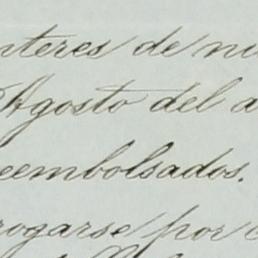 nteres de
Agosto del a
eembolsados.
rogarse por c